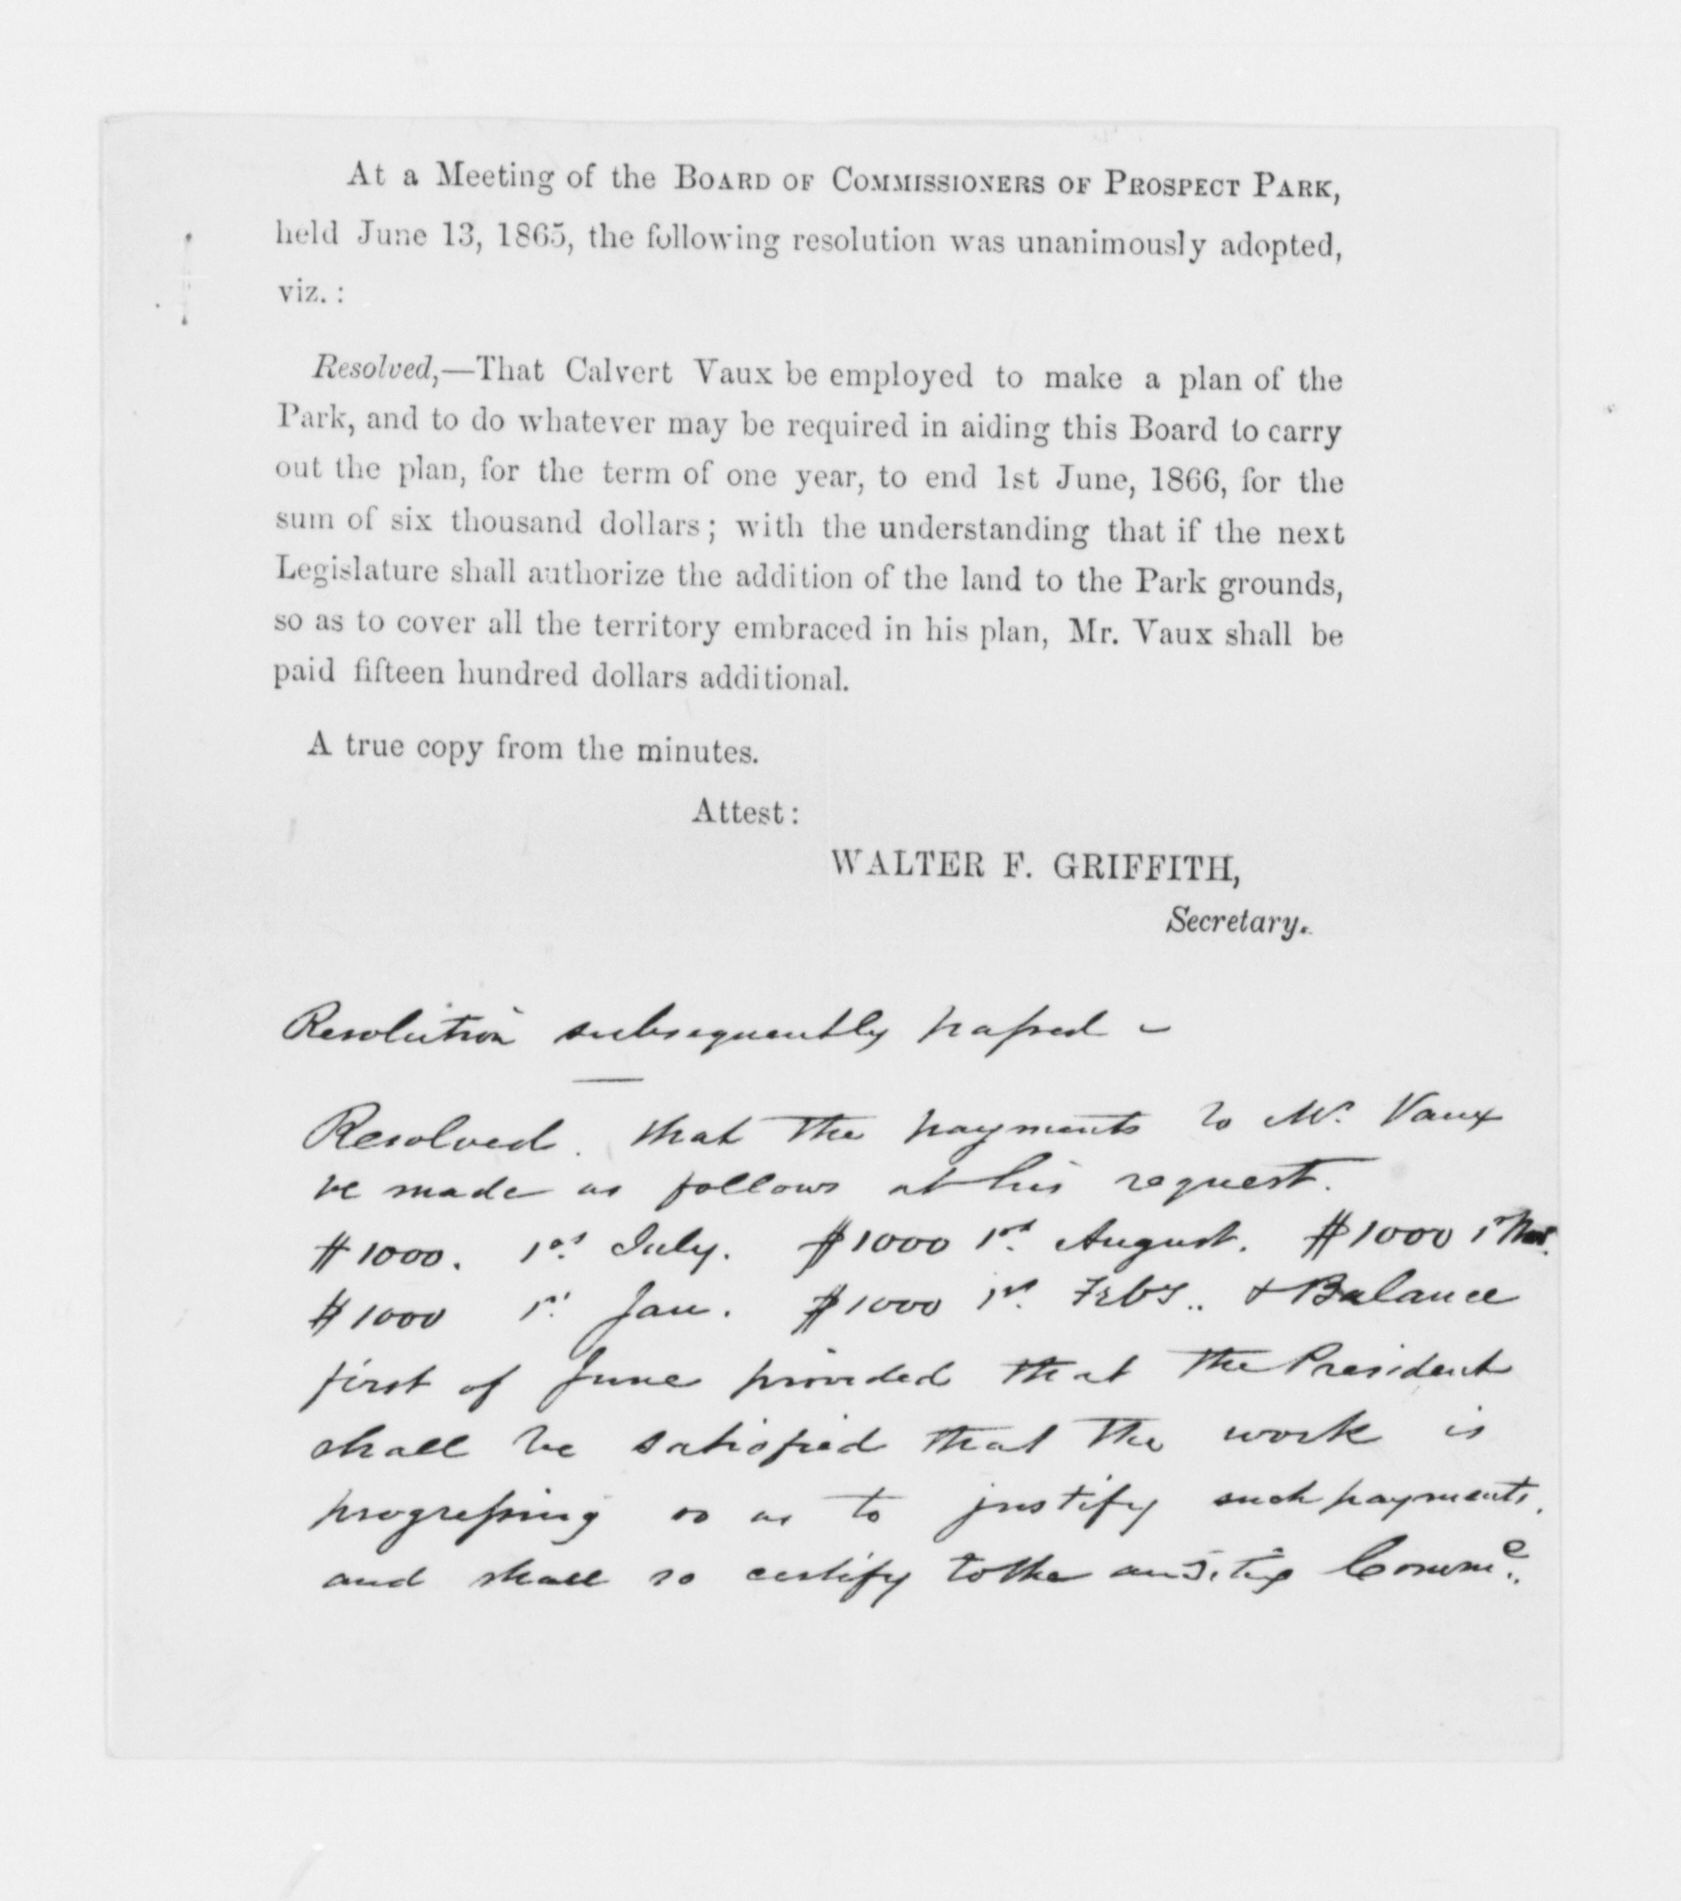 At a Meeting of the Board of Commissioners of Prospect Park,
held June 13, 1865, the following resolution was unanimously adopted,
viz. :
Resolved,—That Calvert Vaux be employed to make a plan of the
Park, and to do whatever may be required in aiding this Board to carry
out the plan, for the term of one year, to end 1st June, 1866, for the
sum of six thousand dollars; with the understanding that if the next
Legislature shall authorize the addition of the land to the Park grounds,
so as to cover all the territory embraced in his plan, Mr. Vaux shall be
paid fifteen hundred dollars additional.
A true copy from the minutes.
Attest:
WALTER F. GRIFFITH,
Secretary.
Resolution subsequently passed –
Resolved. that the payments to Mr. Vaux
be made as follows at his request.
$1000. 1st. July. $1000 1st. August. $1000 1st
$1000 1st. Jan. $1000 1st. Feby.. & Balance
first of June provided that the President
shall be satisfied that the work is
progressing so as to justify such payments.
and shall so certify to the auditing Comme..